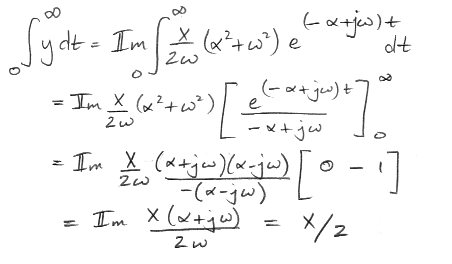 ∫₀^∞ y dt = Im ∫₀^∞ X/2ω (α² + ω²) e^((-α+jω)t) dt
= Im X/2ω (α² + ω²) [ e^((-α+jω)t) / (-α+jω) ]₀^∞
= Im X/2ω (α+jω)(α-jω) / -(α-jω) [ 0 - 1 ]
= Im X(α+jω) / 2ω = X/2